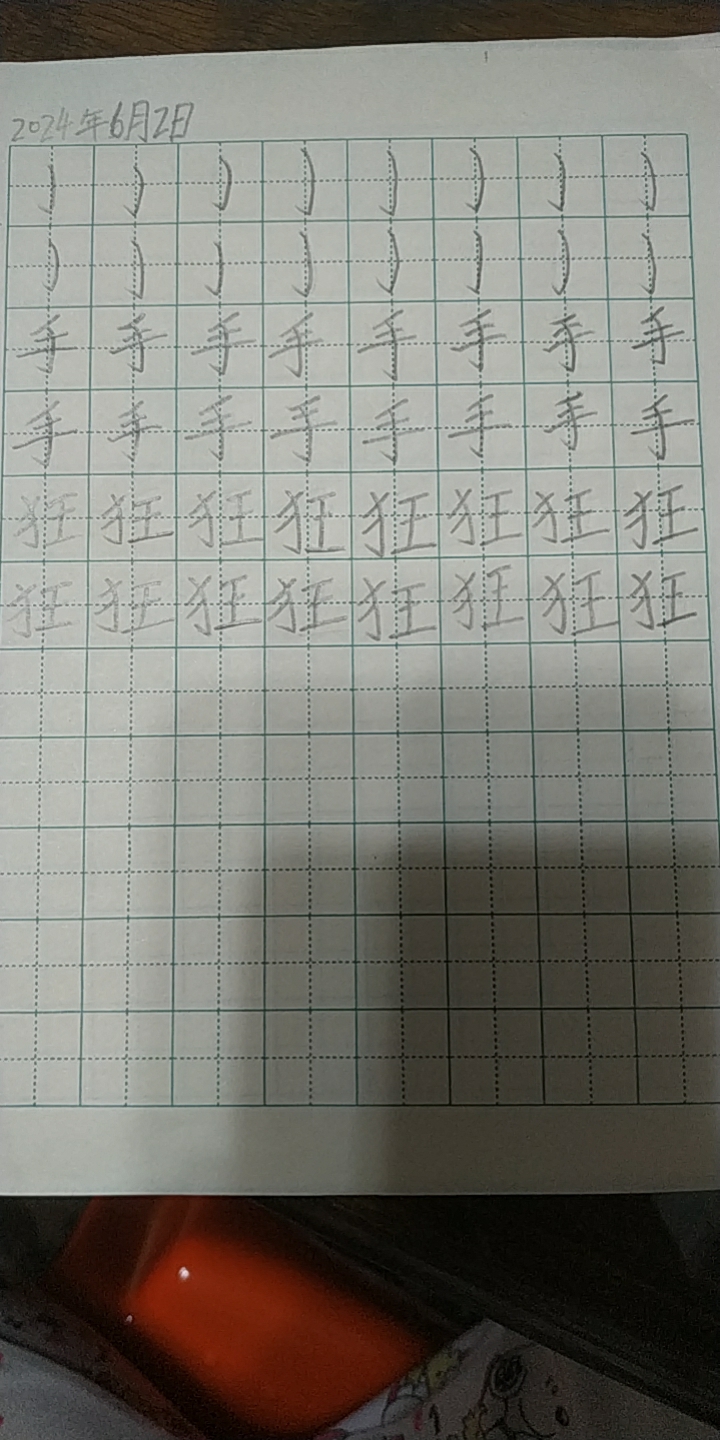 2024年6月2日
手手手手手手手手
手手手手手手手手
狂狂狂狂狂狂狂狂
狂狂狂狂狂狂狂狂